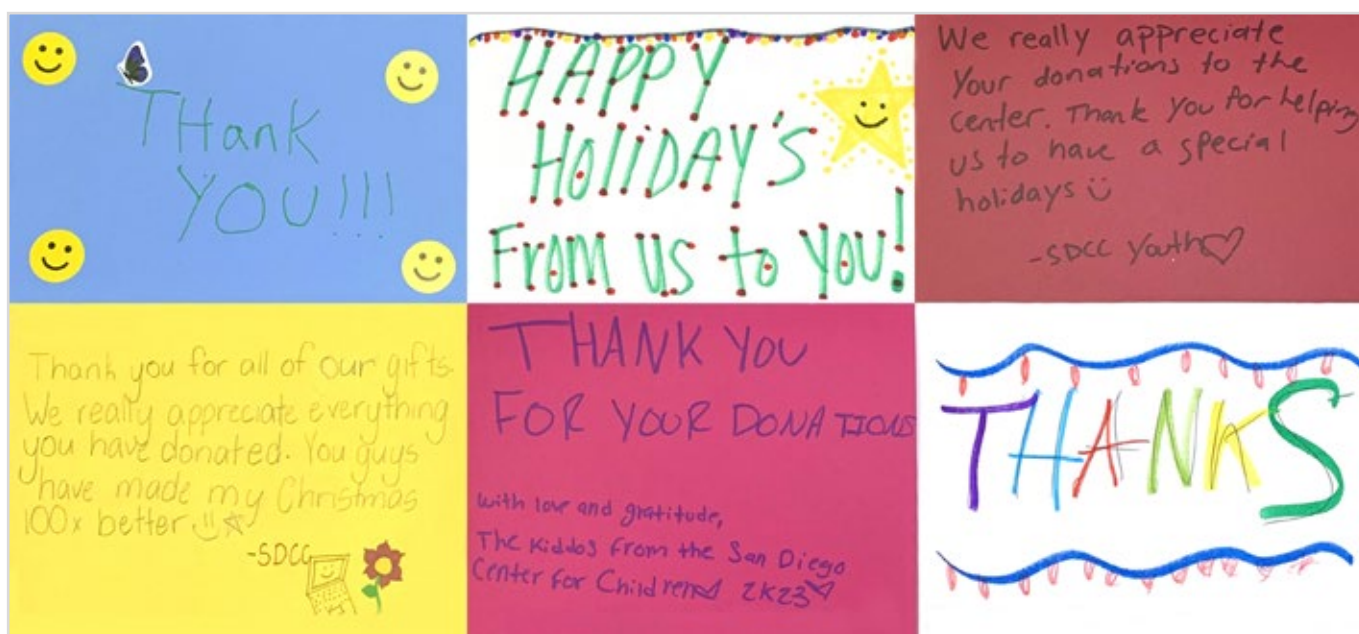 THank
YOU!!!
HAPPY
HOLIDAY'S
From us to you!
We really appreciate
Your donations to the
center. Thank You for helping
us to have a special
holidays
-SDCC Youth
Thank you for all of our gifts.
We really appreciate everything
you have donated. You guys
have made my Christmas
100x better
-SDCC
THANK YOU
FOR YOUR DONATIONS
with love and gratitude,
The Kiddos from the San Diego
Center for Children 2K23
THANKS